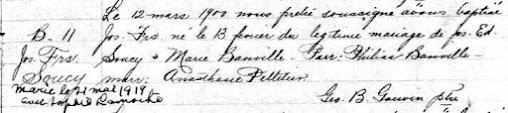 Le 12 mars 1900 nous prêtre soussigné avons baptisé
B. 11 Jos. Frs né le 13 février du légitime mariage de Jos. Ed.
Jos. Frs. Soucy & Marie Banville - Parr: Philias Banville -
Soucy marr: Anasthasie Pelletier
Marié le 21 mai 1919
avec Sophie
Geo. B. Gauvin ptre